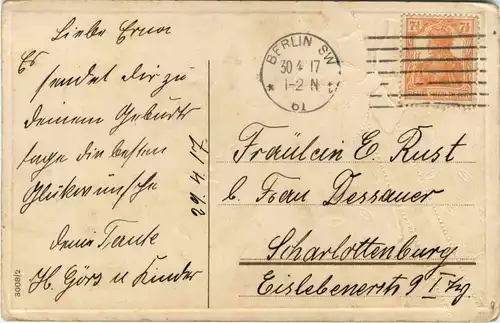 Liebe Erna
Es
sendet dir zu
deinem Geburts
tage die besten
Glükwünsche
deine Tante
H. Görs u Kinder
29.4.17.
3008/2
BERLIN SW
30 4 17
1-2 N
* 61
7½ 7½
Fräulein E. Rust
b. Frau Dessauer
Scharlottenburg
Eislebenerstr 9 I